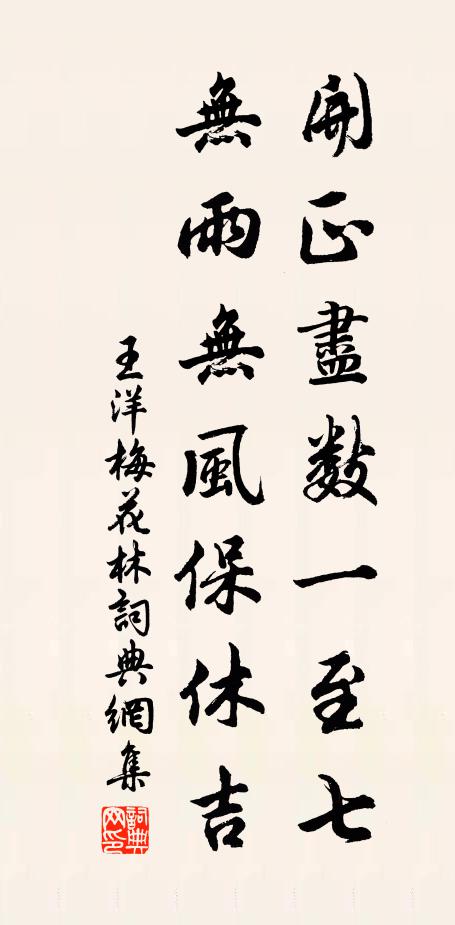 開正盡數一至七
無雨無風保休吉
王洋梅花林詞典網集
詞典網印